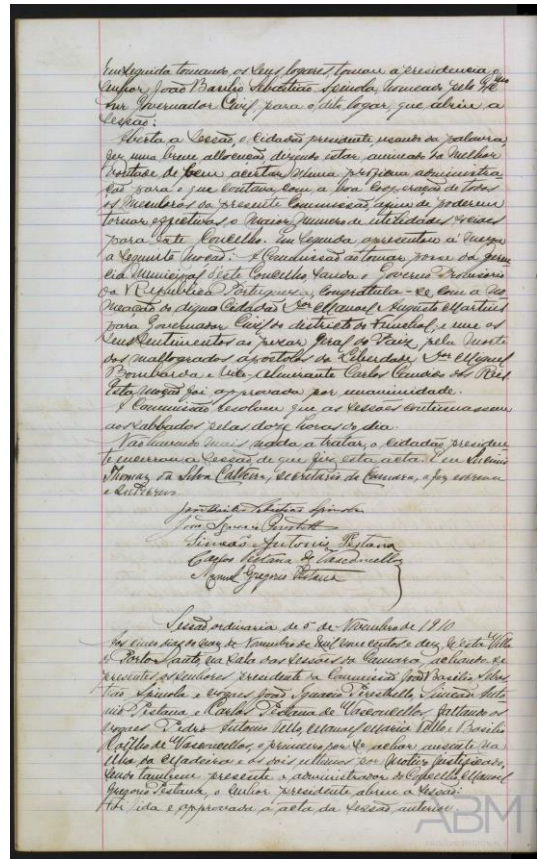 Em seguida tomando os seus logares, tomou a presidencia o
senhor João Basilio Sebastião Spinola, nomeado pelo Exmo
Snr Governador Civil para o dito logar, que abrio a
sessão:
Aberta a sessão, o cidadão presidente, usando da palavra,
fez uma breve allocução dizendo estar animado da melhor
vontade de bem acertar n'uma proficua administra-
ção para o que contava com a boa cooperação de todos
os membros da presente Commissão, afim de poderem
tornar effectivas, o maior numero de utilidades
para este Concelho. Em seguida apresentou á meza
a seguinte moção: A Commissão ao tomar posse da geren-
cia Municipal d'este Concelho, sauda o Governo Provisorio
da Republica Portugueza, congratula-se com a no-
meação do digno Cidadão Dor Manoel Augusto Martins
para Governador Civil do districto do Funchal, e une os
seus sentimentos ao pezar geral do Paiz pela morte
dos mallogrados apostolos da Liberdade, Dor Miguel
Bombarda e Vice-Almirante Carlos Candido dos Reis.
Esta moção foi approvada por unanimidade.
A Commissão resolveu que as sessões continuassem
aos sabbados pelas doze horas do dia.
Não havendo mais nada a tratar, o cidadão presiden-
te encerrou a sessão de que fiz esta acta. Eu
Thomaz da Silva Caldeira, secretario da Camara, a fiz escrever
e subscrevo.
João Basilio Sebastião Spinola
João Ignacio Perestrello
Simeão Antonio Pestana
Carlos Pestana de Vasconcellos
Manoel Gregorio Pestana
Sessão ordinaria de 5 de Novembro de 1910
Aos cinco dias do mez de Novembro de mil nove centos e dez, n'esta Villa
do Porto Santo, na sala das sessões da Camara, achando-se
presentes os senhores presidente da Commissão João Basilio Sebas-
tião Spinola e vogaes João Ignacio Perestrello, Simeão Anto-
nio Pestana e Carlos Pestana de Vasconcellos, faltando os
vogaes Pedro Antonio Vello, Manoel Maria Vello e Basilio
Coelho de Vasconcellos, o primeiro por se achar ausente na
ilha da Madeira e os dois ultimos por motivo justificado,
sendo tambem presente o administrador do Concelho, Manoel
Gregorio Pestana, o senhor presidente abrio a sessão:
Foi lida e approvada a acta da sessão anterior.
ABM